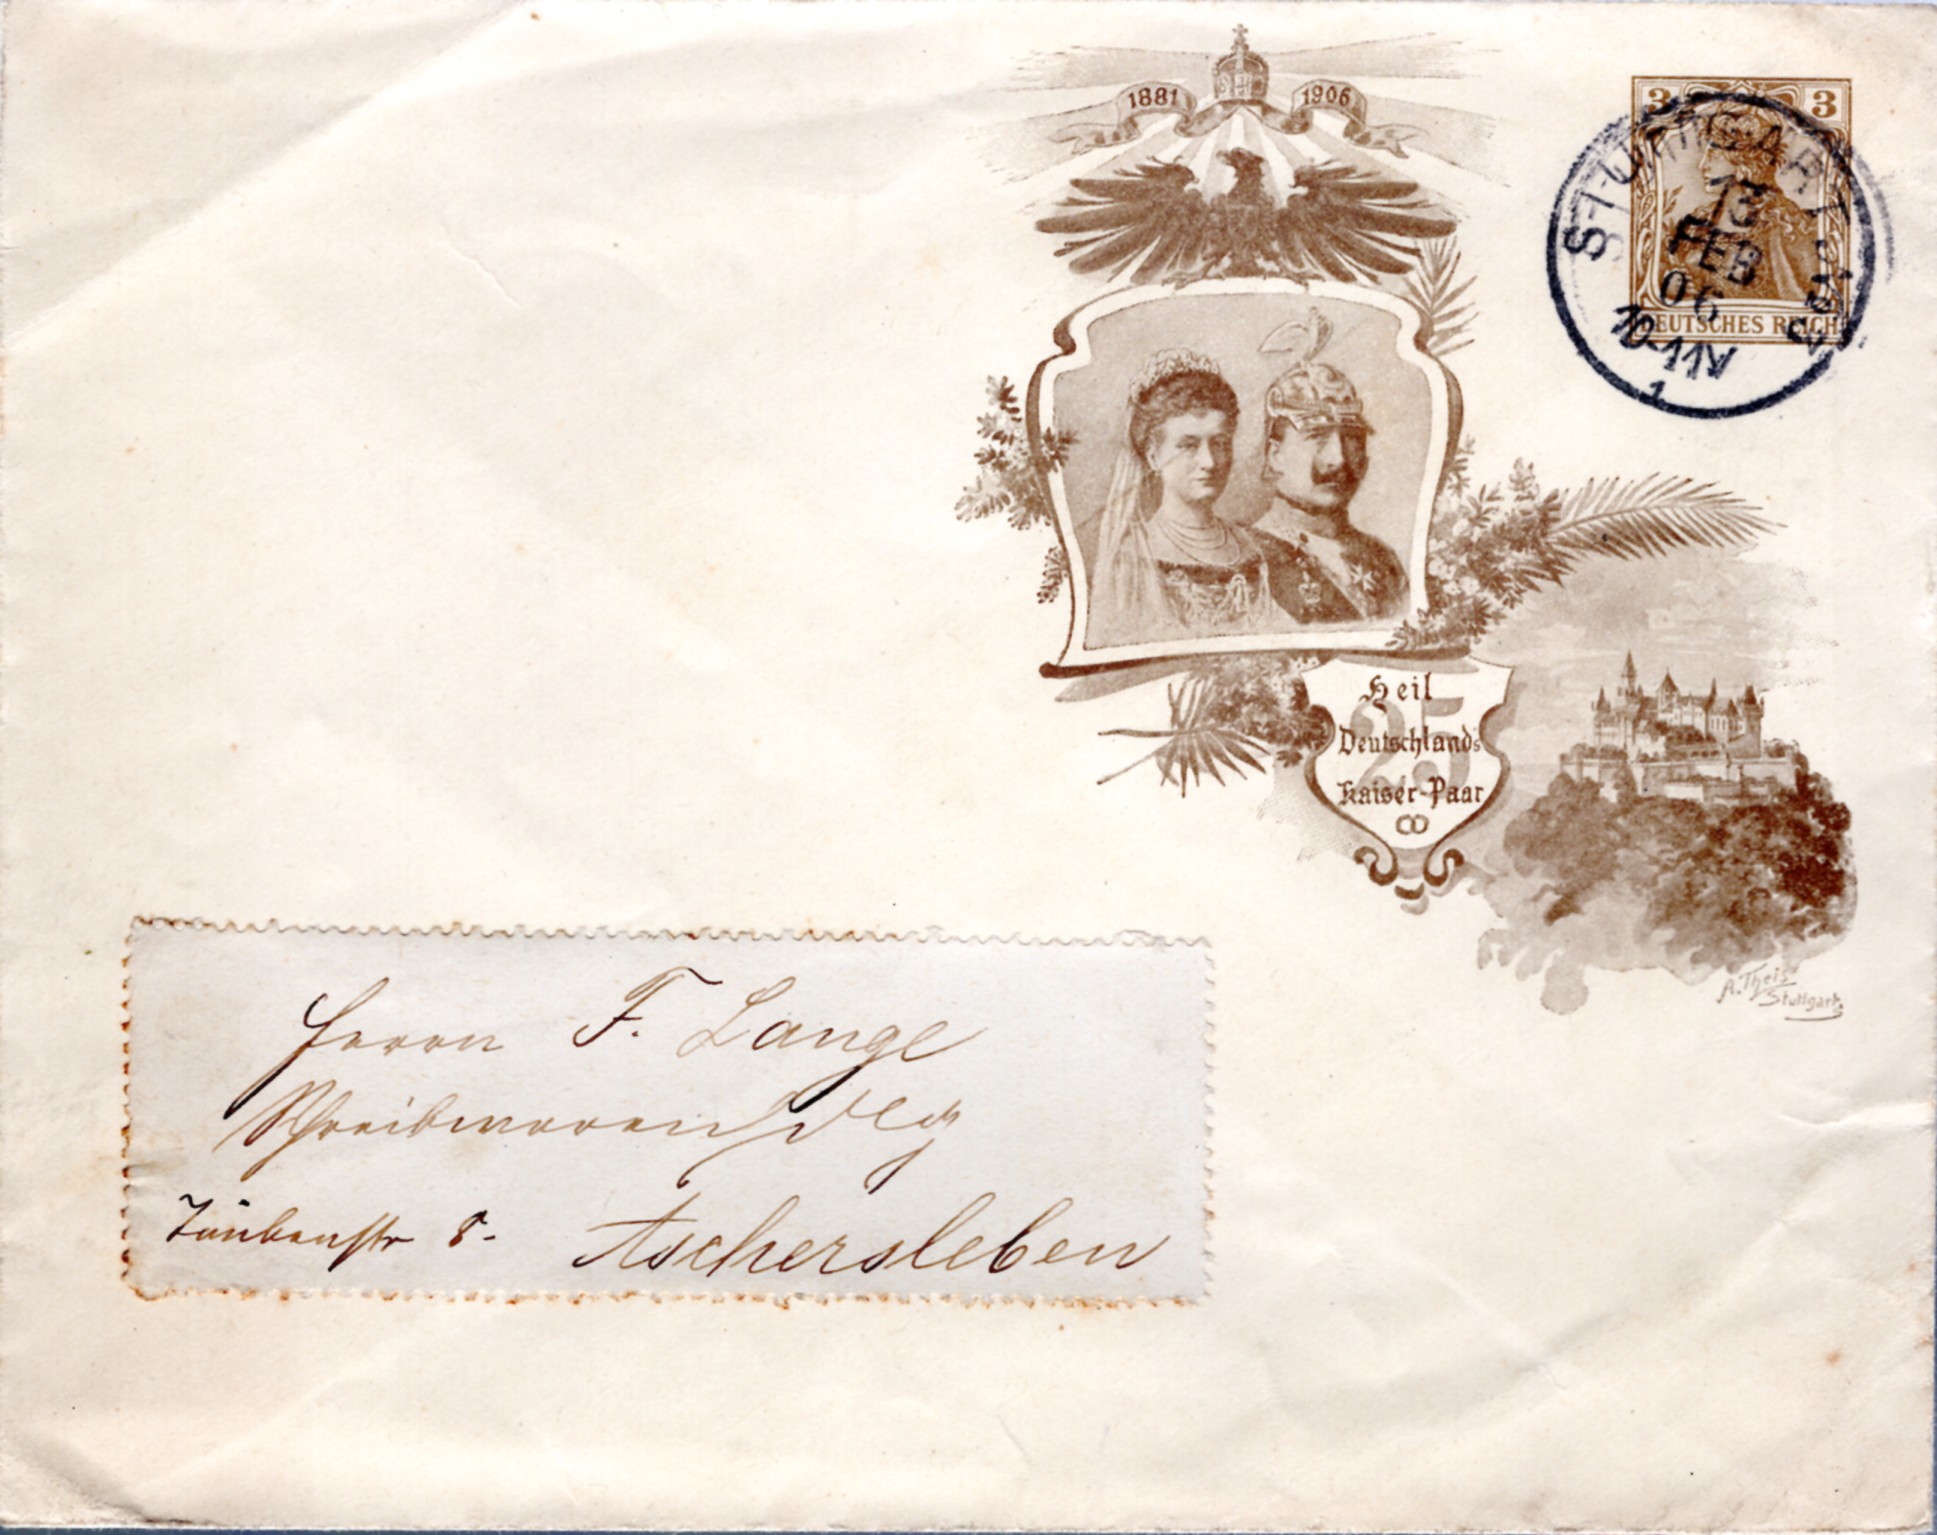 1881 1906
3 3
STUTTGART
13
FEB
06
10-11V
1
DEUTSCHES REICH
Heil
25
Deutschlands
Kaiser-Paar
A. Theis
Stuttgart.
Herrn F. Lange
Schreibwarenhdlg
Taubenstr 8.
Aschersleben